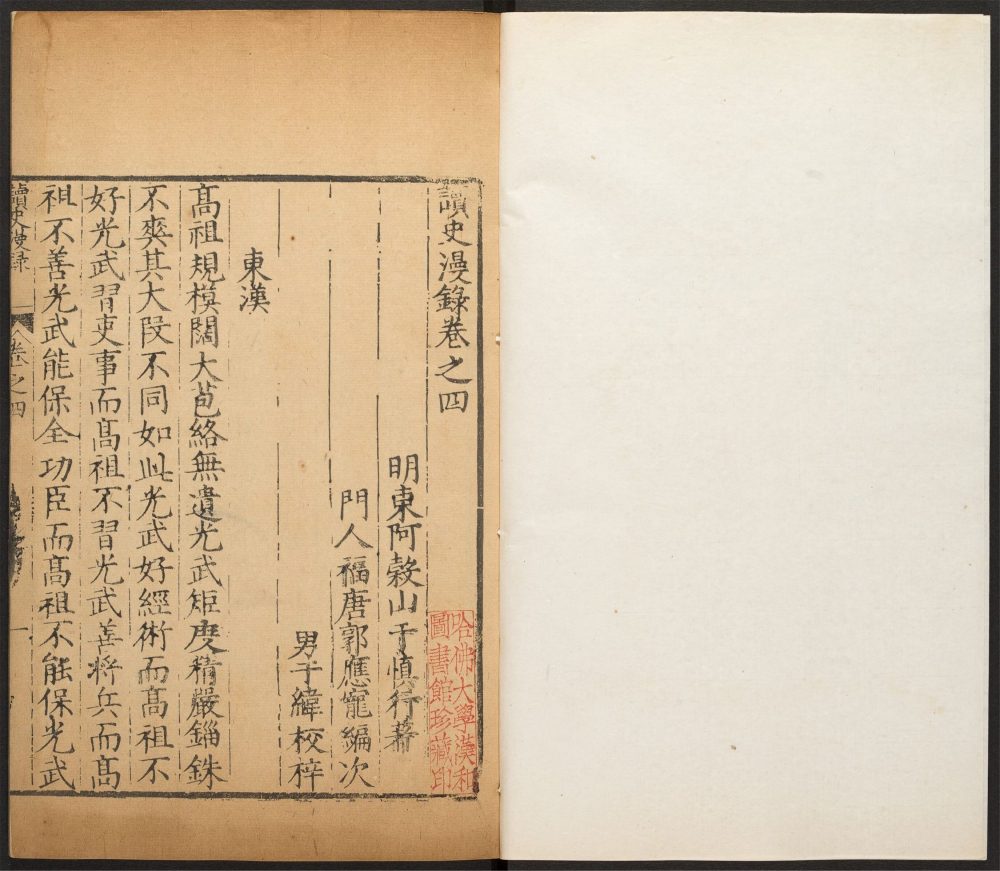 讀史漫錄卷之四
哈佛大學漢和
圖書館珍藏印
明東阿榖山于慎行著
門人福唐郭應寵編次
男于緯校梓
東漢
高祖規模闊大苞絡無遺光武矩度精嚴錙銖
不爽其大段不同如此光武好經術而高祖不
好光武習吏事而高祖不習光武善將兵而高
祖不善光武能保全功臣而高祖不能保光武
讀史漫錄
卷之四
一